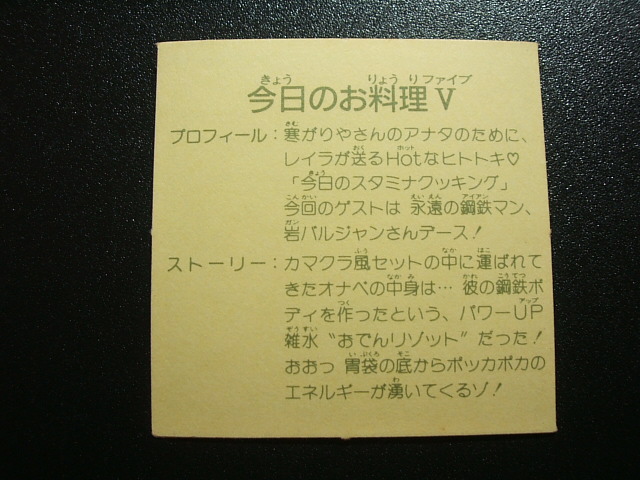 今日のお料理V
プロフィール：寒がりやさんのアナタのために、
レイラが送るHotなヒトトキ♡
「今日のスタミナクッキング」
今回のゲストは 永遠の鋼鉄マン、
岩バルジャンさんデース！
ストーリー：カマクラ風セットの中に運ばれて
きたオナベの中身は… 彼の鋼鉄ボ
ディを作ったという、パワーUP
雑水 “おでんリゾット” だった！
おおっ 胃袋の底からポッカポカの
エネルギーが湧いてくるゾ！